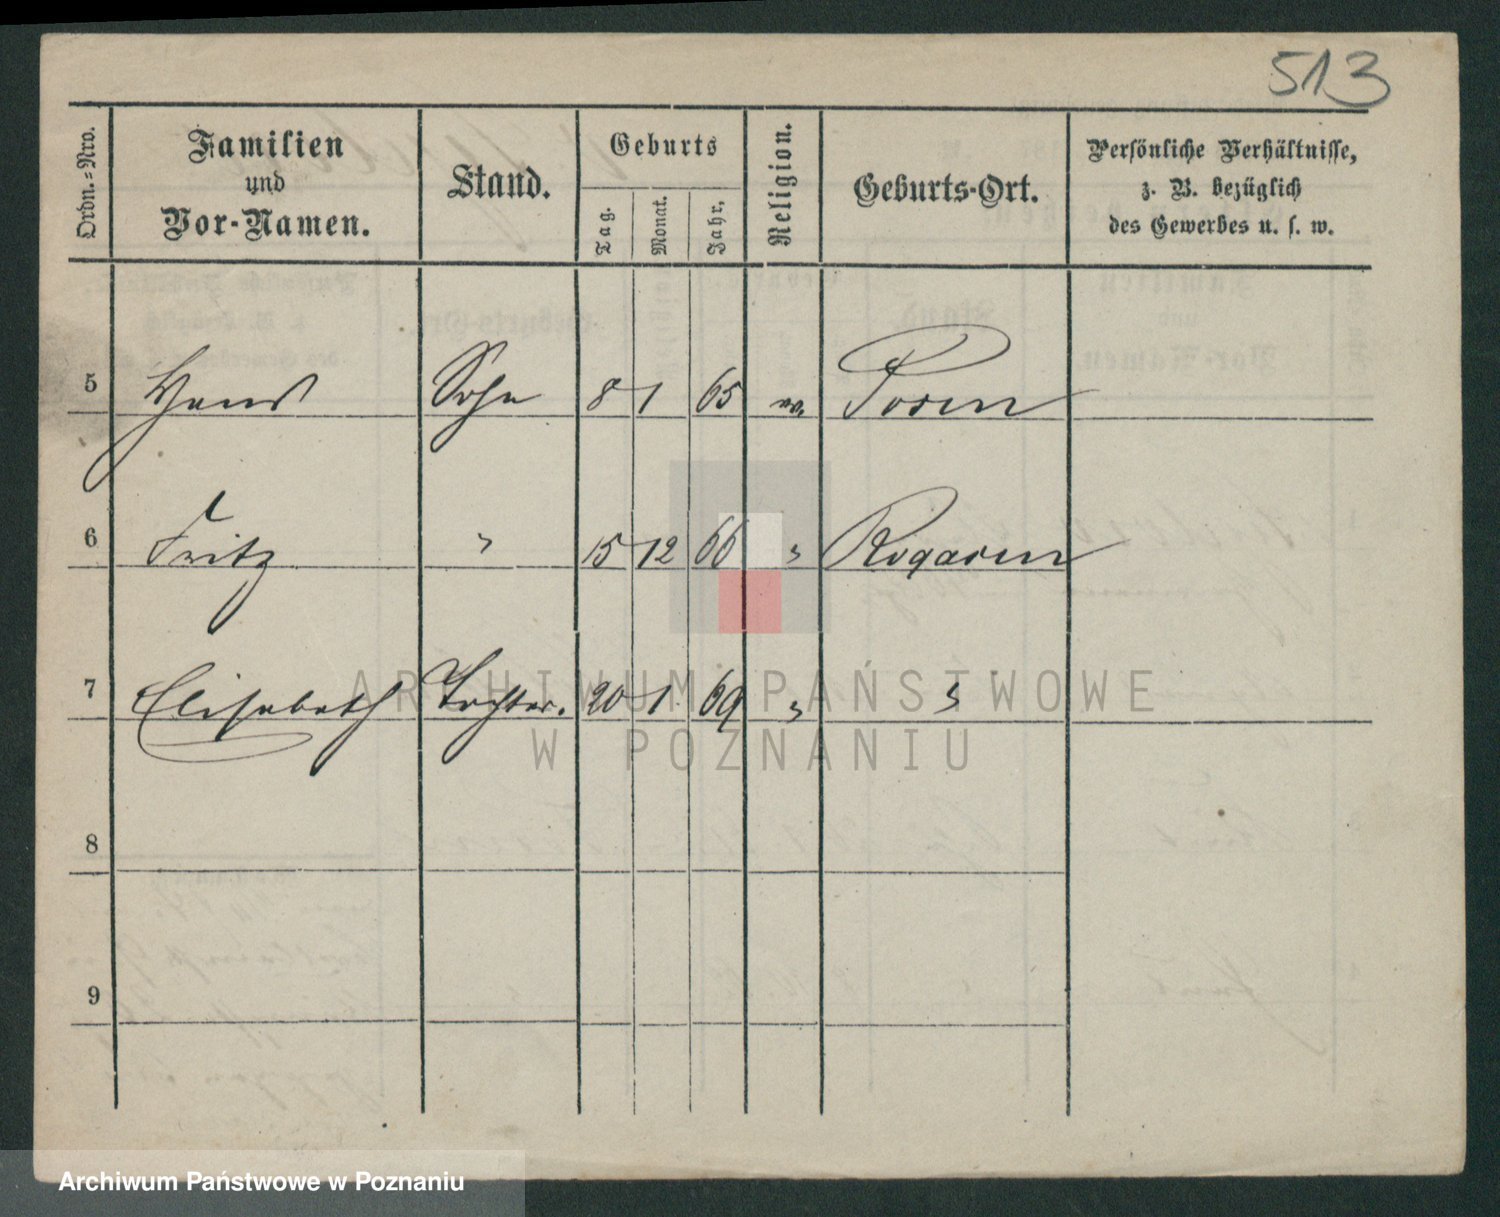 513
Ordn.=Nro. Familien und Vor-Namen. Stand. Geburts Tag. Monat. Jahr. Religion. Geburts-Ort. Persönliche Verhältnisse, z. B. bezüglich des Gewerbes u. s. w.
5 Hans Sohn 8 1 65 ev. Posen
6 Fritz " 15 12 66 " Rogasen
7 Elisabeth Tochter. 20 1 69 " "
8
9
ARCHIWUM PAŃSTWOWE
W POZNANIU
Archiwum Państwowe w Poznaniu